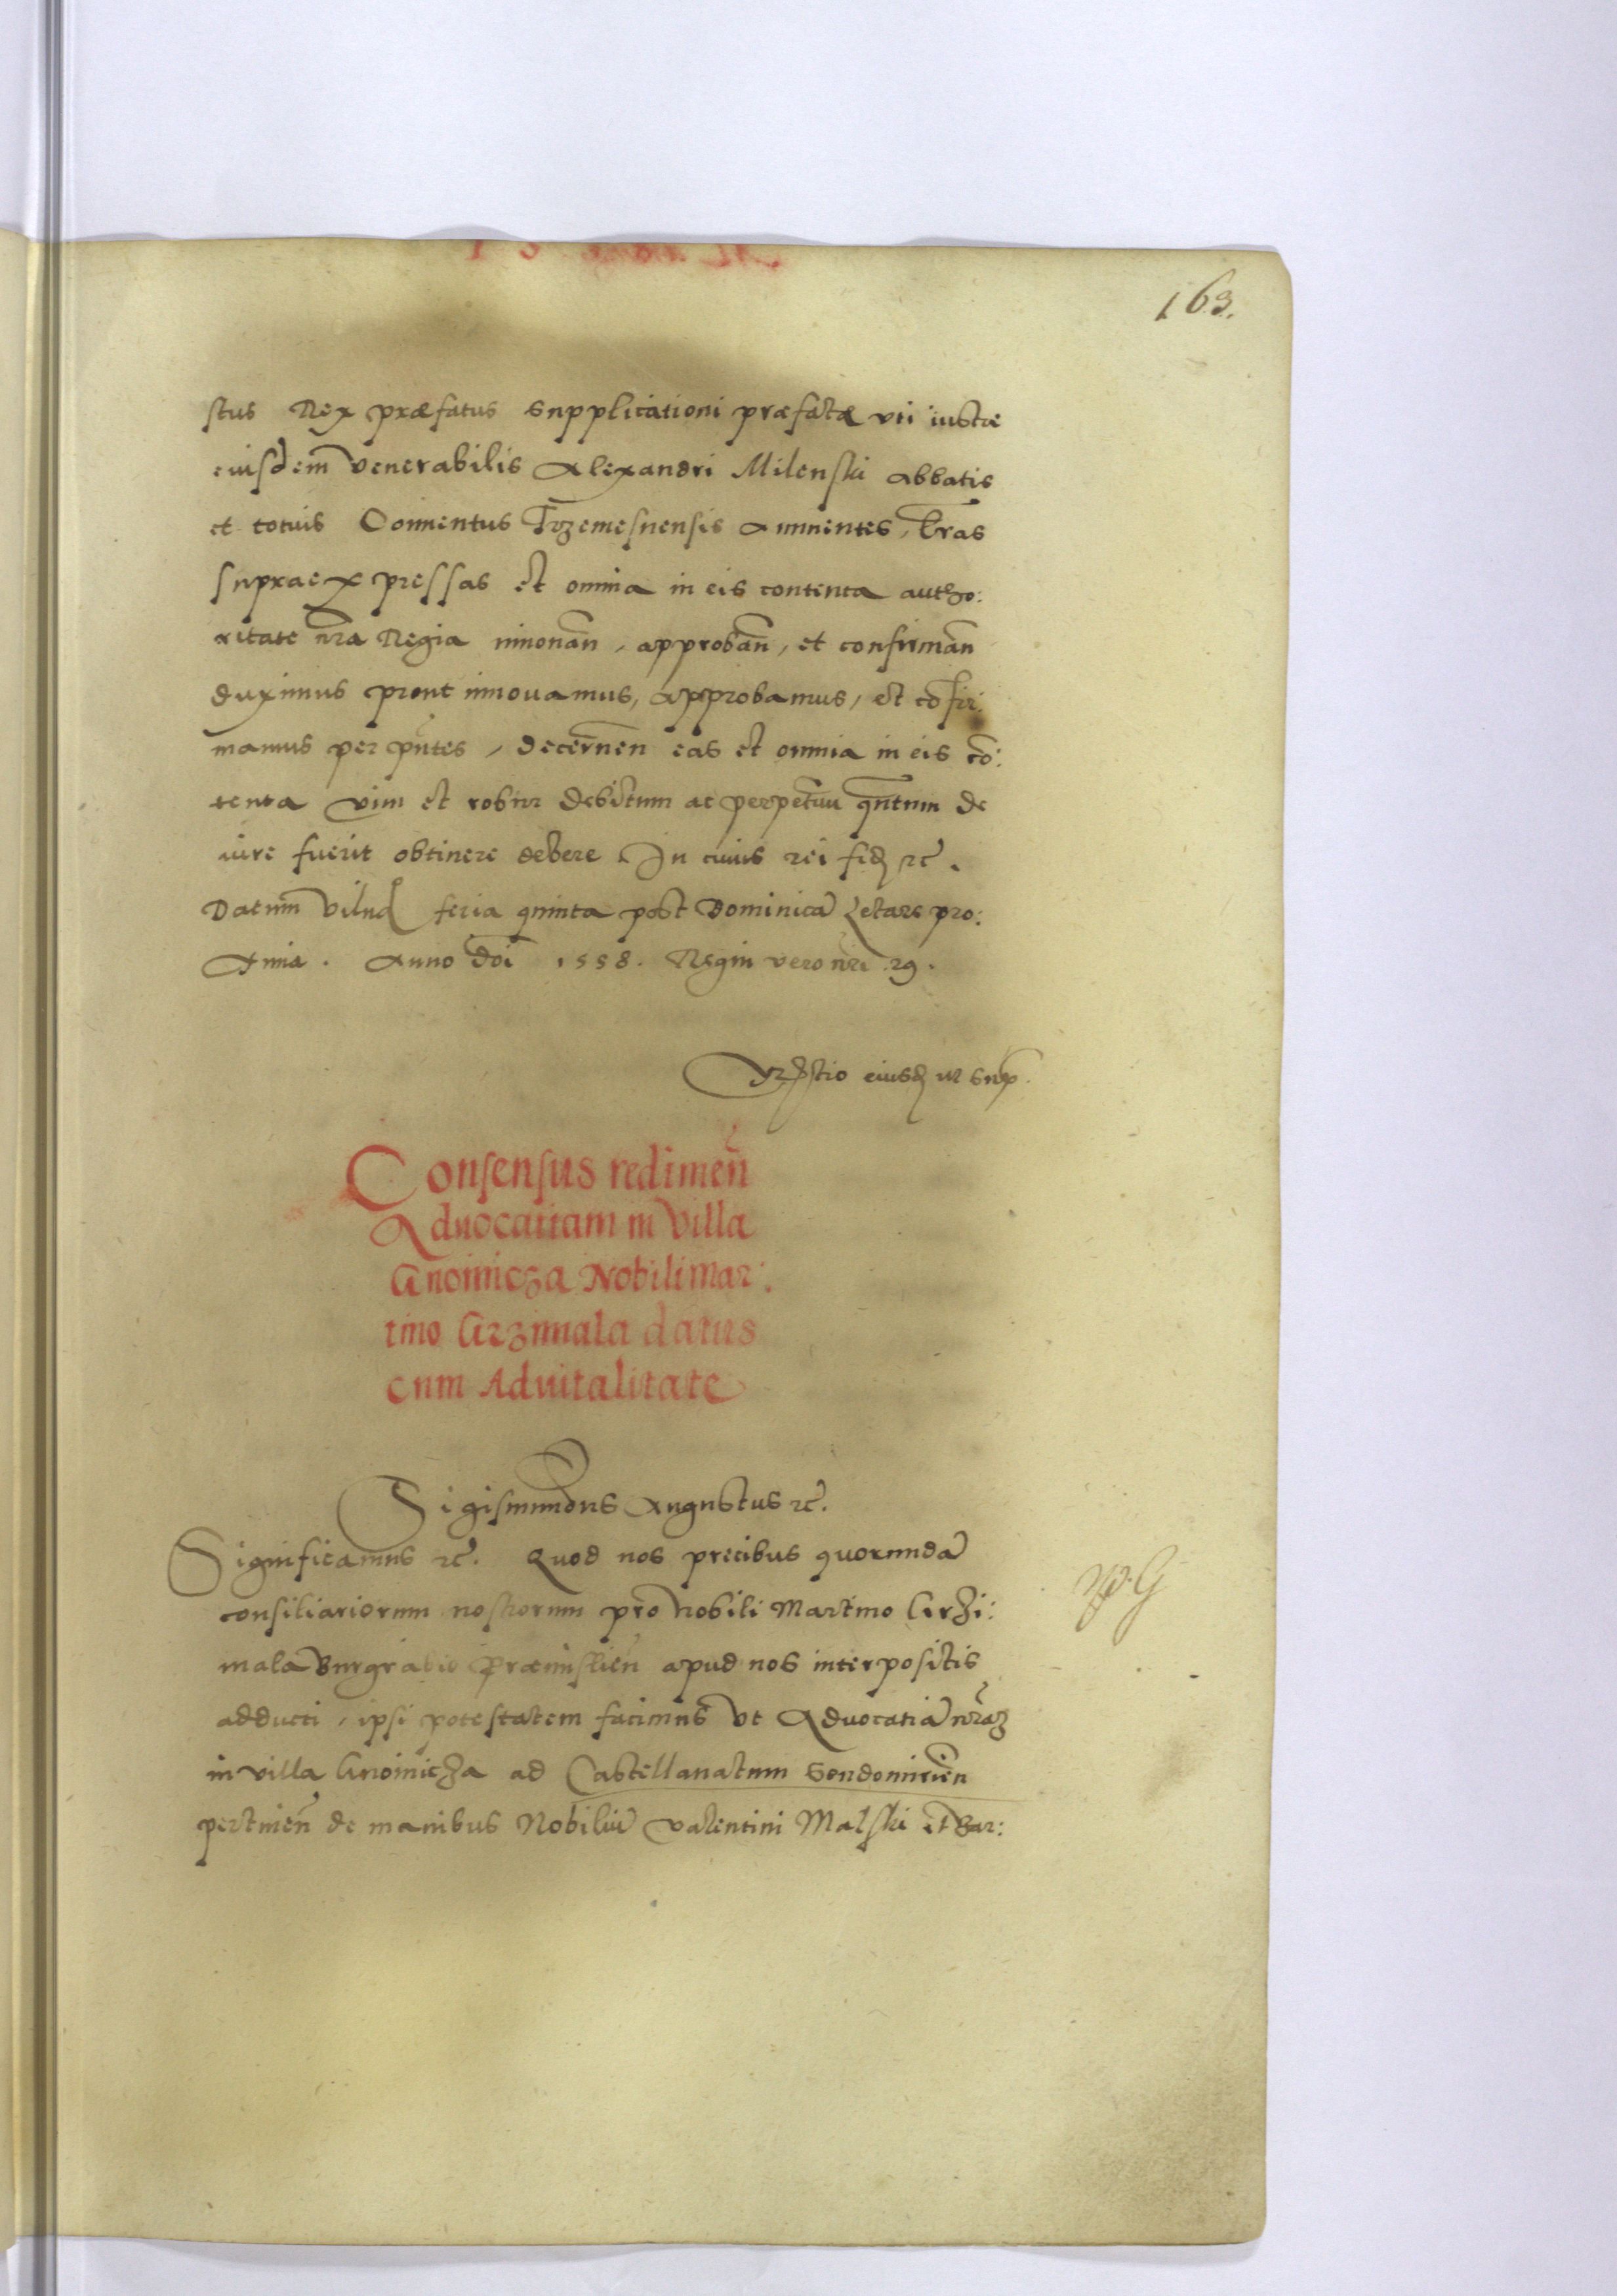 163.
stus Rex præfatus supplicationi præfatæ uti iustæ
eiusdem venerabilis Alexandri Milenski Abbatis
et totius Conventus Trzemesnensis annuentes, lr̄as
supraexpressas et omnia in eis contenta autho:
ritate nr̄a Regia innouan̄, approban̄, et confirman̄
duximus prout innouamus, approbamus, et cōfir:
mamus per pn̄tes, decernen̄ eas et omnia in eis cō:
tenta vim et robur debitum ac perpetuū qn̄tum de
iure fuerit obtinere debere. In cuius rei fidꝫ ꝛc̄.
Datum Vilnæ feria quinta post Dominicā Letare pro:
xima. Anno Dn̄i 1558. Regni vero nr̄i 29.
eiusdꝫ ut sup.
Consensus redimen̄
Aduocatiam in villa
Gnoinicza Nobili Mar:
tino Grzimala datus
cum Aduitalitate
Sigismundus Augustus ꝛc̄.
Significamus ꝛc̄. Quod nos precibus quorundā
consiliariorum nostrorum pro Nobili Martino Grzi:
mala Burgrabio Præmislien̄ apud nos interpositis
adducti, ipsi potestatem facimus ut Aduocatiā nr̄aꝫ
in villa Gnoinicza ad Castellanatum Sendomirien̄
pertinen̄ de manibus Nobiliū Valentini Malski et Bar: